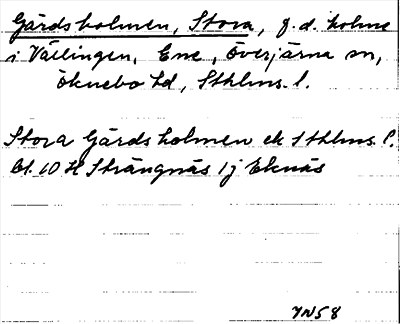 Gärdsholmen, Stora, f.d. holme
i Vällingen, Ene, Överjärna sn,
Öknebo hd, Sthlms. l.
Stora Gärdsholmen ek Sthlms. l.
bl. 10 H Strängnäs 1j Eknäs
YN58